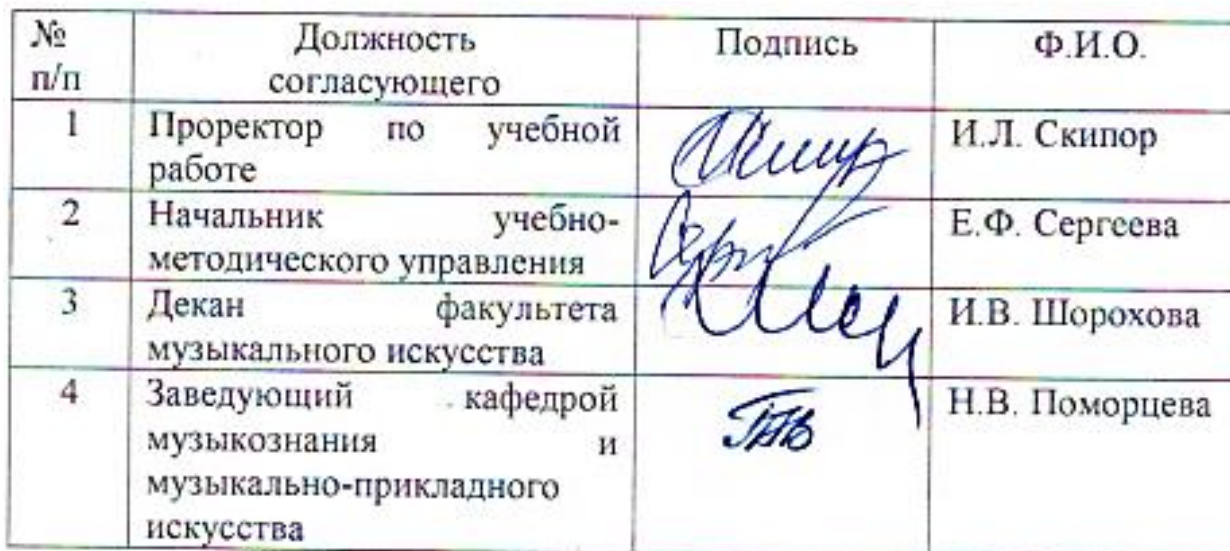 № п/п Должность согласующего Подпись Ф.И.О.
1 Проректор по учебной работе И.Л. Скипор
2 Начальник учебно-методического управления Е.Ф. Сергеева
3 Декан факультета музыкального искусства И.В. Шорохова
4 Заведующий кафедрой музыкознания и музыкально-прикладного искусства Н.В. Поморцева